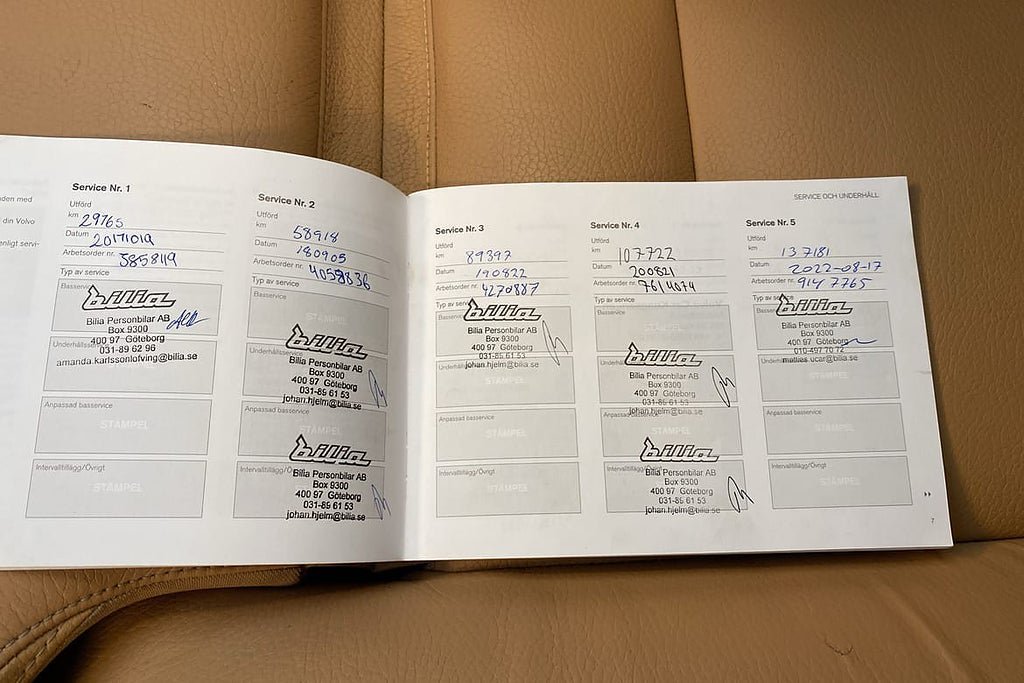 den med
din Volvo
enligt servi-
Service Nr. 1
Utförd
km 29765
Datum 20171019
Arbetsorder nr. 3858119
Typ av service
Basservice
bilia
Bilia Personbilar AB
Box 9300
400 97 Göteborg
031-89 62 96
Underhållsservice
amanda.karlssonlofving@bilia.se
Anpassad basservice
STÄMPEL
Intervalltillägg/Övrigt
STÄMPEL
Service Nr. 2
Utförd
km 58918
Datum 180905
Arbetsorder nr. 4058836
Typ av service
Basservice
STÄMPEL
bilia
Underhållsservice
Bilia Personbilar AB
Box 9300
400 97 Göteborg
031-89 61 53
johan.hjelm@bilia.se
Anpassad basservice
STÄMPEL
bilia
Intervalltillägg/Ö
Bilia Personbilar AB
Box 9300
400 97 Göteborg
031-89 61 53
johan.hjelm@bilia.se
SERVICE OCH UNDERHÅLL
Service Nr. 3
Utförd
km 89397
Datum 190822
Arbetsorder nr. 4270887
Typ av se
Basservice
bilia
Bilia Personbilar AB
Box 9300
400 97 Göteborg
031-89 61 53
johan.hjelm@bilia.se
STÄMPEL
Anpassad basservice
STÄMPEL
Intervalltillägg/Övrigt
STÄMPEL
Service Nr. 4
Utförd
km 107722
Datum 200821
Arbetsorder nr. 7614074
Typ av service
Basservice
STÄMPEL
bilia
Bilia Personbilar AB
Box 9300
400 97 Göteborg
031-89 61 53
johan.hjelm@bilia.se
Anpassad basservice
STÄMPEL
bilia
Intervalltillägg/Övrigt
Bilia Personbilar AB
Box 9300
400 97 Göteborg
031-89 61 53
johan.hjelm@bilia.se
Service Nr. 5
Utförd
km 137181
Datum 2022-08-17
Arbetsorder nr. 914 7765
Typ av se
bilia
Bilia Personbilar AB
Box 9300
400 97 Göteborg
010-497 70 72
mattias.ucar@bilia.se
STÄMPEL
Anpassad basservice
STÄMPEL
Intervalltillägg/Övrigt
STÄMPEL
7